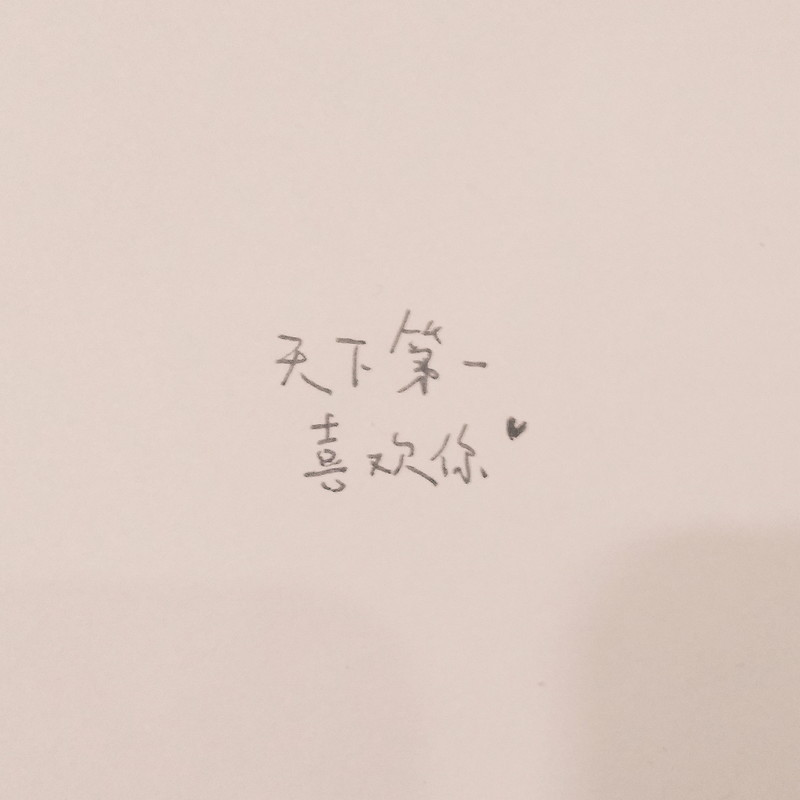 天下第一
喜欢你